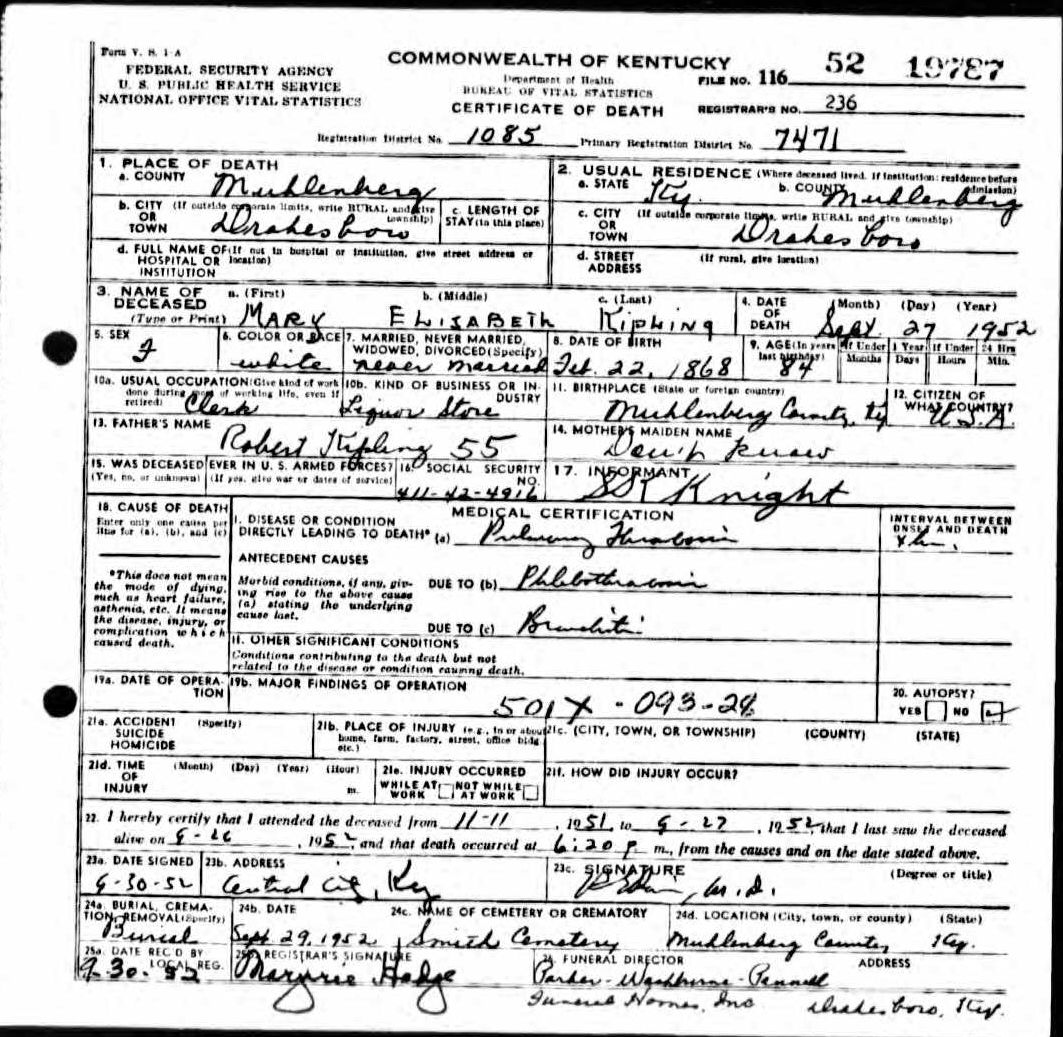 Form V. S. 1-A
FEDERAL SECURITY AGENCY
U. S. PUBLIC HEALTH SERVICE
NATIONAL OFFICE VITAL STATISTICS
COMMONWEALTH OF KENTUCKY
Department of Health
BUREAU OF VITAL STATISTICS
CERTIFICATE OF DEATH
FILE NO. 116 52 19787
REGISTRAR'S NO. 236
Registration District No. 1085 Primary Registration District No. 7471
1. PLACE OF DEATH
a. COUNTY Muhlenberg
2. USUAL RESIDENCE (Where deceased lived. If institution: residence before admission)
a. STATE Ky. b. COUNTY Muhlenberg
b. CITY OR TOWN (If outside corporate limits, write RURAL and give township) Drakesboro
c. LENGTH OF STAY (in this place)
c. CITY OR TOWN (If outside corporate limits, write RURAL and give township) Drakesboro
d. FULL NAME OF HOSPITAL OR INSTITUTION (If not in hospital or institution, give street address or location)
d. STREET ADDRESS (If rural, give location)
3. NAME OF DECEASED (Type or Print)
a. (First) MARY b. (Middle) ELISABETH c. (Last) KIPLING
4. DATE OF DEATH (Month) (Day) (Year) Sept. 27 1952
5. SEX F
6. COLOR OR RACE white
7. MARRIED, NEVER MARRIED, WIDOWED, DIVORCED (Specify) never married
8. DATE OF BIRTH Feb. 22, 1868
9. AGE (In years last birthday) 84
If Under 1 Year Months Days
If Under 24 Hrs Hours Min.
10a. USUAL OCCUPATION (Give kind of work done during most of working life, even if retired) Clerk
10b. KIND OF BUSINESS OR INDUSTRY Liquor Store
11. BIRTHPLACE (State or foreign country) Muhlenberg County, Ky
12. CITIZEN OF WHAT COUNTRY? U.S.A.
13. FATHER'S NAME Robert Kipling 55
14. MOTHER'S MAIDEN NAME Don't know
15. WAS DECEASED EVER IN U. S. ARMED FORCES? (Yes, no, or unknown) (If yes, give war or dates of service)
16. SOCIAL SECURITY NO. 411-42-4916
17. INFORMANT Knight
18. CAUSE OF DEATH
Enter only one cause per line for (a), (b), and (c)
MEDICAL CERTIFICATION
INTERVAL BETWEEN ONSET AND DEATH
I. DISEASE OR CONDITION DIRECTLY LEADING TO DEATH* (a) Pulmonary Thrombosis
*This does not mean the mode of dying, such as heart failure, asthenia, etc. It means the disease, injury, or complication which caused death.
ANTECEDENT CAUSES
Morbid conditions, if any, giving rise to the above cause (a) stating the underlying cause last.
DUE TO (b) Phlebothrombosis
DUE TO (c) Bronchitis
II. OTHER SIGNIFICANT CONDITIONS
Conditions contributing to the death but not related to the disease or condition causing death.
19a. DATE OF OPERATION
19b. MAJOR FINDINGS OF OPERATION
501X - 093-28
20. AUTOPSY?
YES NO
21a. ACCIDENT SUICIDE HOMICIDE (Specify)
21b. PLACE OF INJURY (e.g., in or about home, farm, factory, street, office bldg etc.)
21c. (CITY, TOWN, OR TOWNSHIP) (COUNTY) (STATE)
21d. TIME OF INJURY (Month) (Day) (Year) (Hour) m.
21e. INJURY OCCURRED
WHILE AT WORK NOT WHILE AT WORK
21f. HOW DID INJURY OCCUR?
22. I hereby certify that I attended the deceased from 11-11, 1951, to 9-27, 1952, that I last saw the deceased
alive on 9-26, 1952, and that death occurred at 6:20 P m., from the causes and on the date stated above.
23a. DATE SIGNED 9-30-52
23b. ADDRESS Central City, Ky
23c. SIGNATURE M.D. (Degree or title)
24a. BURIAL, CREMATION, REMOVAL (Specify) Burial
24b. DATE Sept 29, 1952
24c. NAME OF CEMETERY OR CREMATORY Smith Cemetery
24d. LOCATION (City, town, or county) (State) Muhlenberg County Ky.
25a. DATE REC'D BY LOCAL REG. 9-30-52
25b. REGISTRAR'S SIGNATURE Marjorie Hodge
26. FUNERAL DIRECTOR ADDRESS
Parker-Washburne-Pannell
Funeral Homes, Inc Drakesboro, Ky.